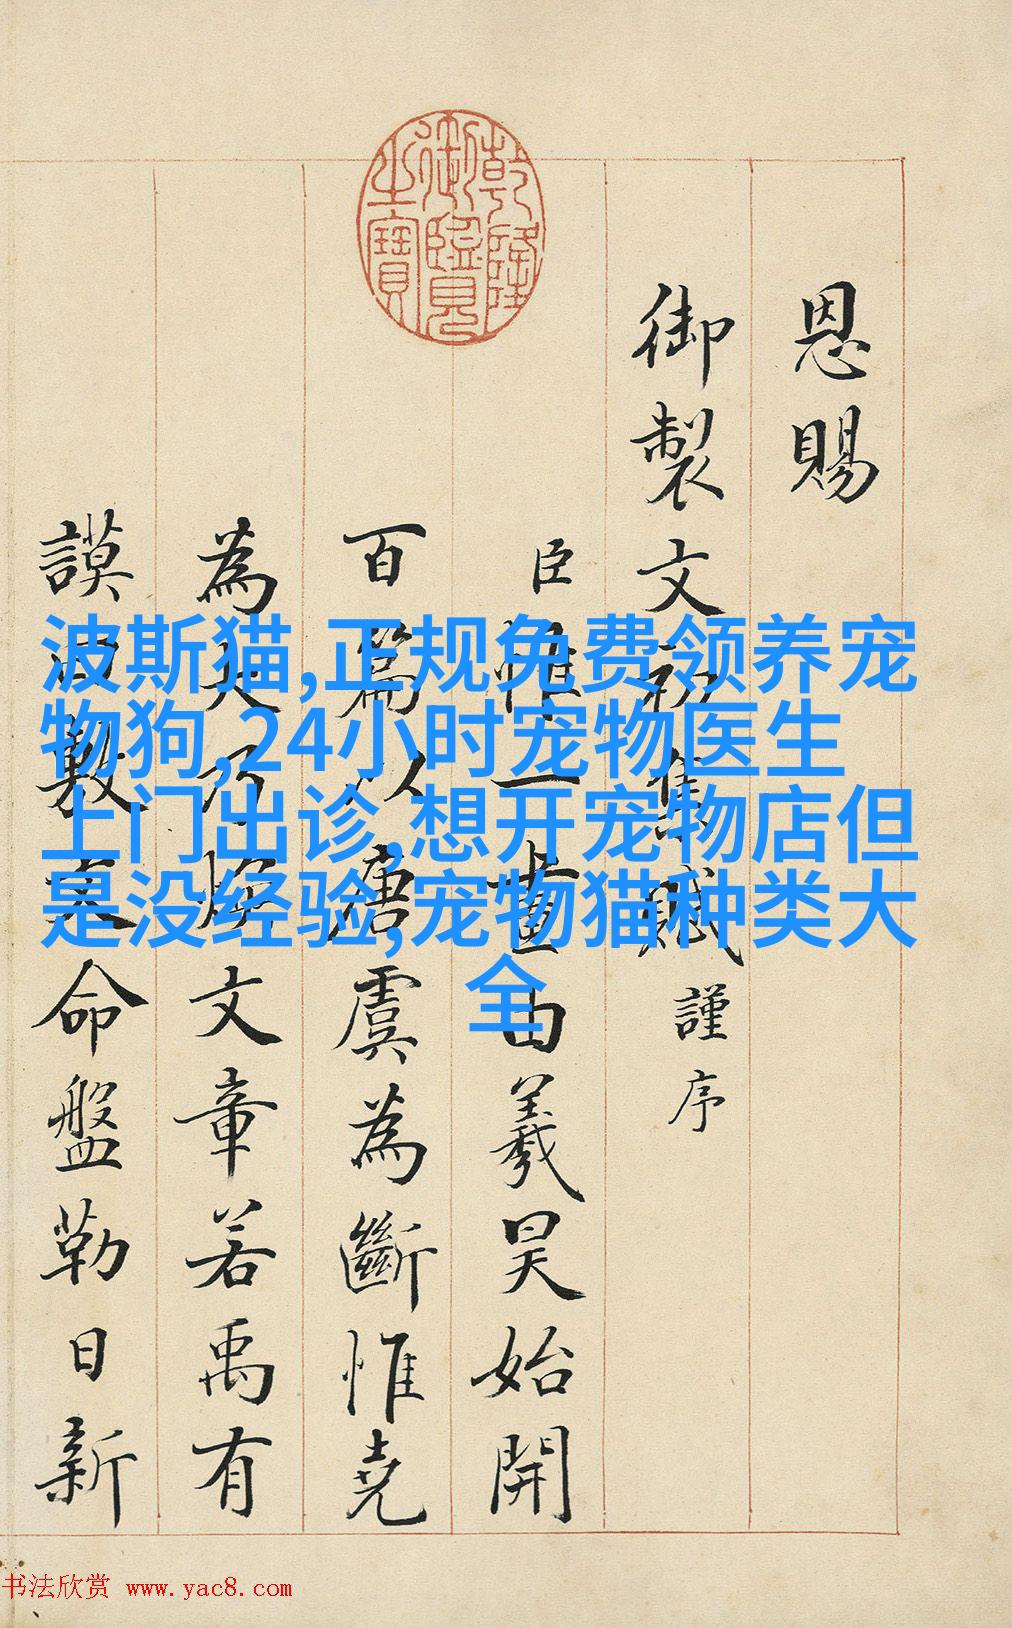 乾隆御覽之寶
恩賜
御製文初集賦謹序
臣惟一畫由羲昊始開
百篇以唐虞為斷惟堯
為大乃煥文章若禹有
謨敷文命盤勒日新
波斯猫,正规免费领养宠
物狗,24小时宠物医生
上门出诊,想开宠物店但
是没经验,宠物猫种类大
全
书法欣赏 www.yac8.com